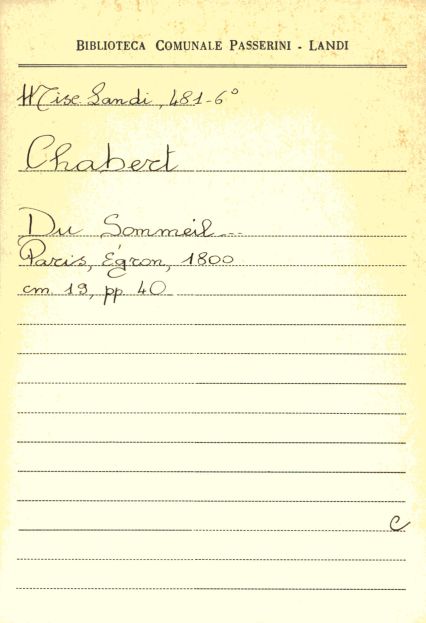 BIBLIOTECA COMUNALE PASSERINI - LANDI
Misc. Landi, 481-6°
Chabert
Du Sommeil...
Paris, Égron, 1800
cm. 19, pp. 40
C